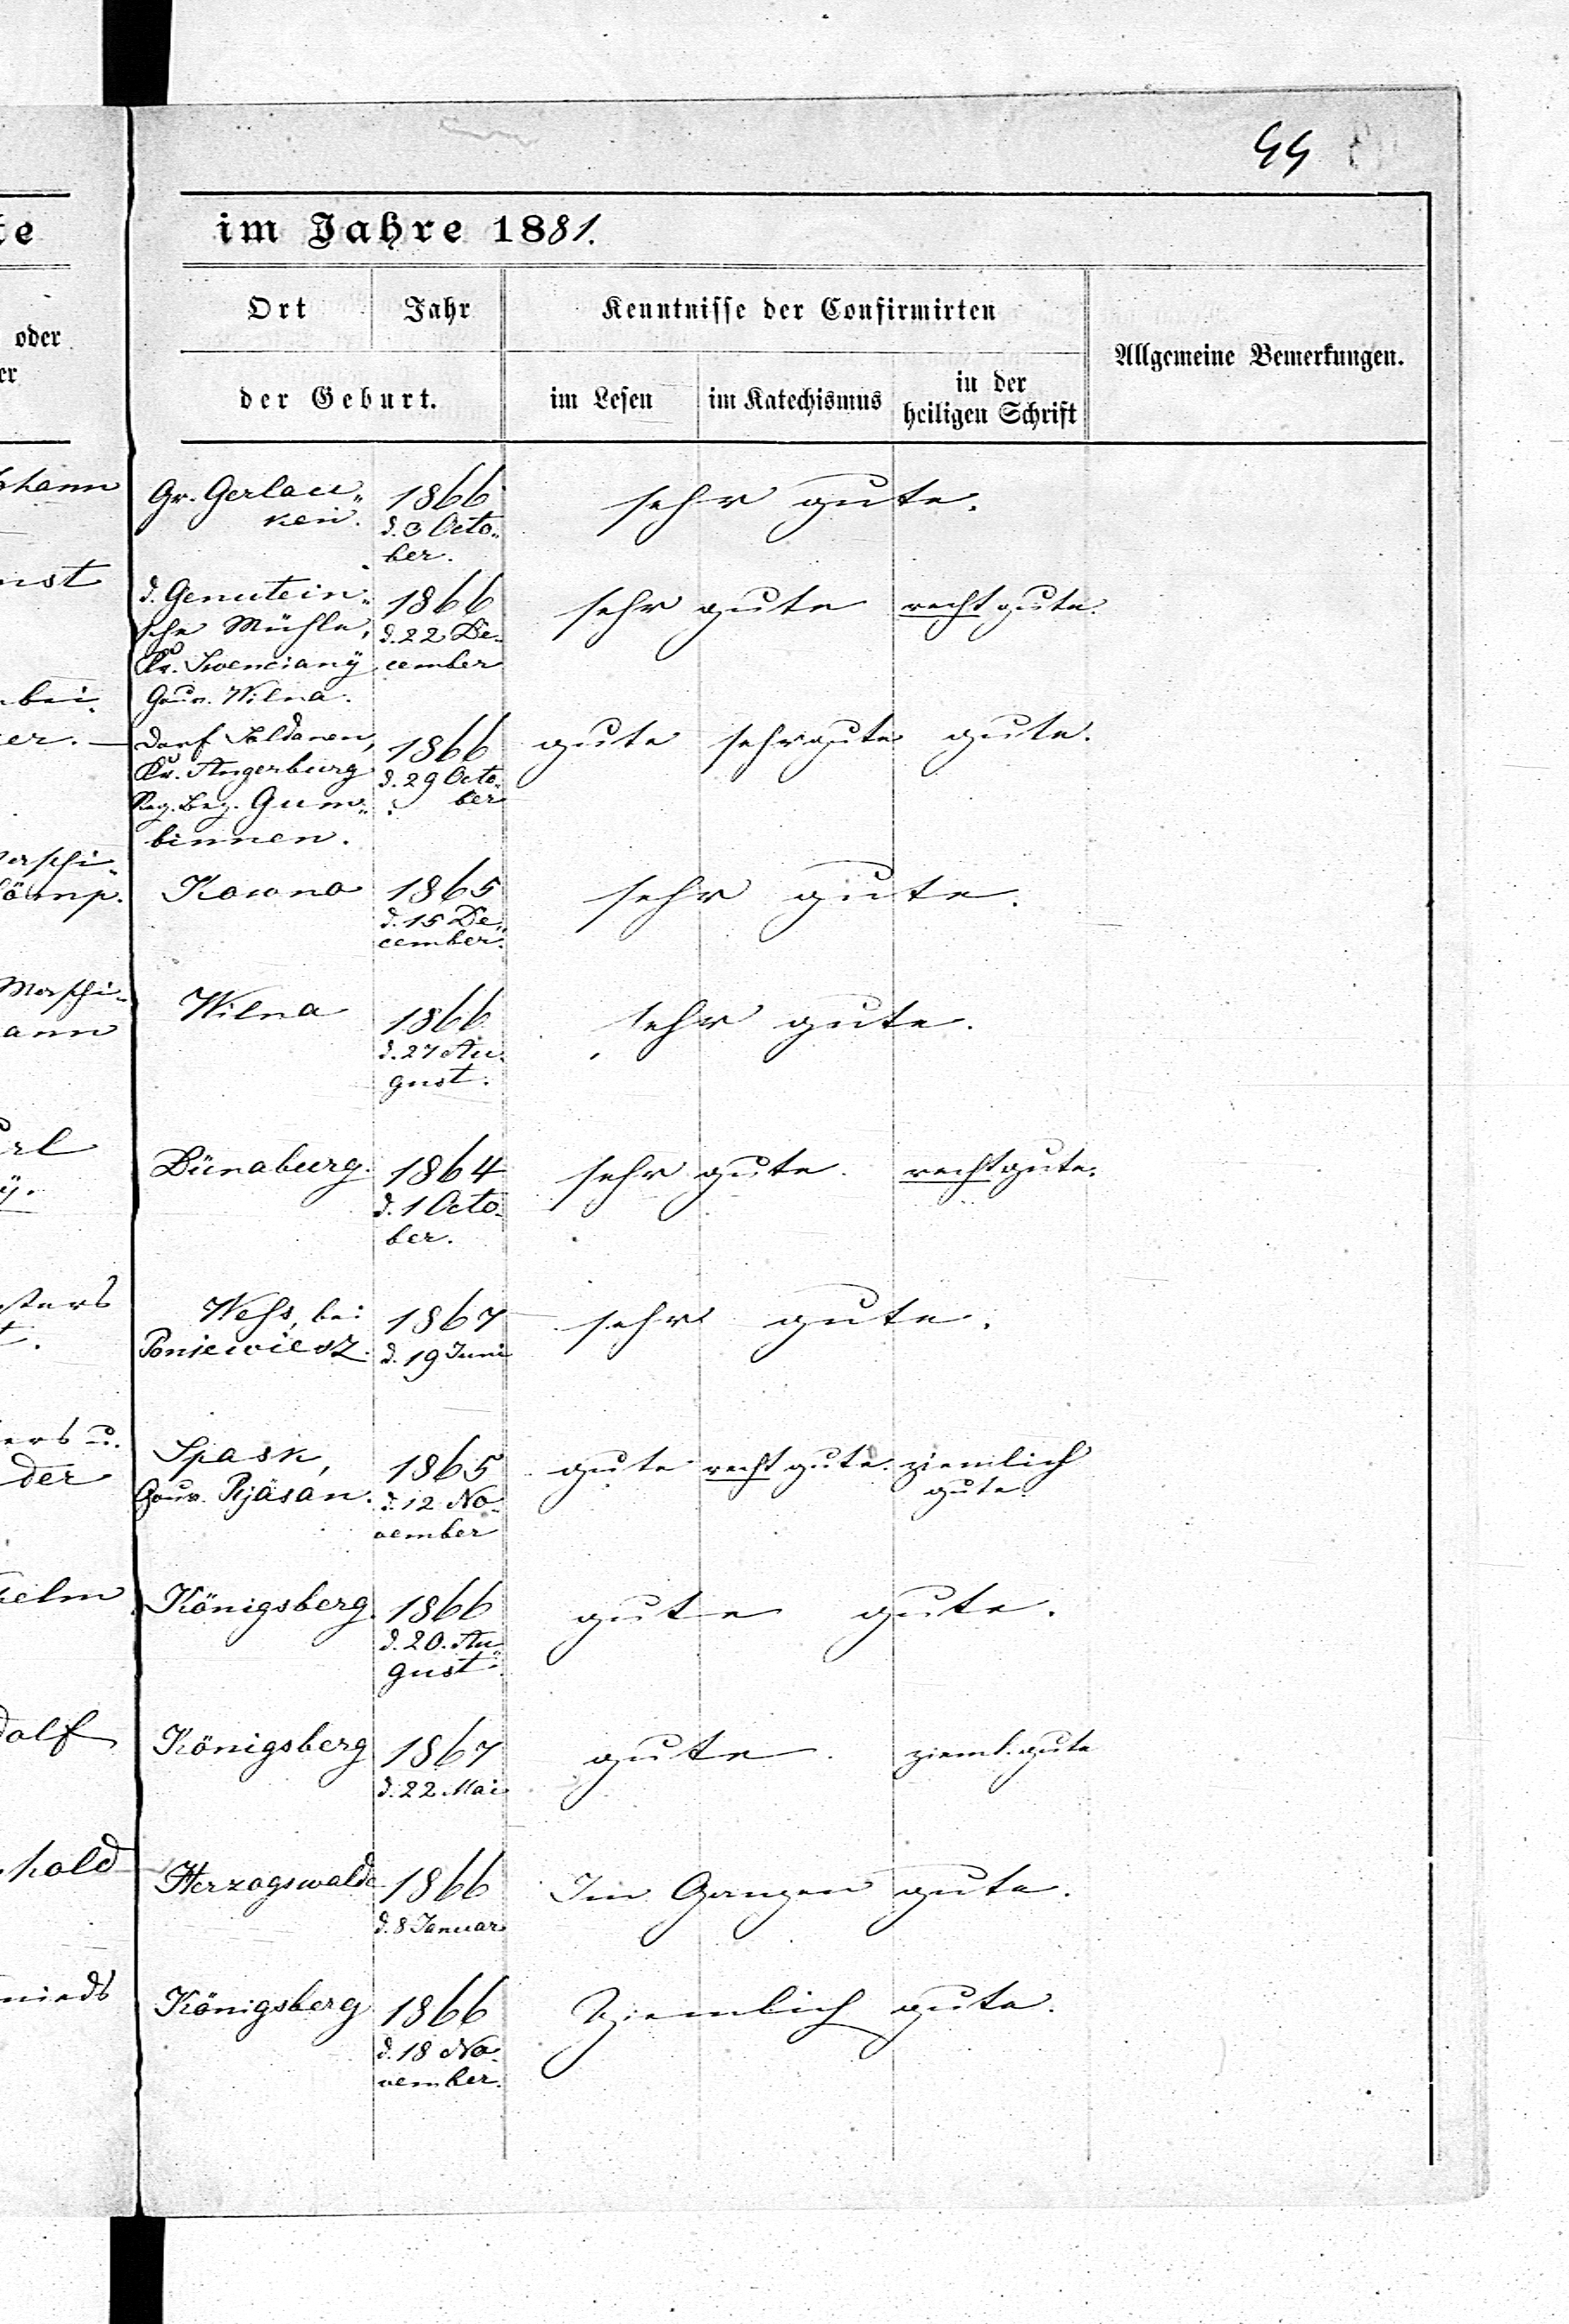 44
im Jahre 1881.
Ort Jahr Kenntnisse der Confirmirten
oder
er
Allgemeine Bemerkungen.
der Geburt. im Lesen im Katechismus in der heiligen Schrift
Gr. Gerlau„ 1866 sehr gute.
ken. d. 3 Octo„
ber.
d. Genutein„ 1866 sehr gute recht gute.
sche Mühle, d. 22 De„
Kr. Swenciany cember
Gouv. Wilna.
Dorf Soldanen, 1866 gute sehr gute gute.
Kr. Angerburg d. 29 Octo„
Reg. Bez. Gum„ ber
binnen.
Kowno 1865 sehr gute.
d. 15 De„
cember.
Wilna 1866 sehr gute.
d. 27 Au„
gust.
Dünaburg. 1864 sehr gute. recht gute.
d. 1 Octo„
ber.
bei 1867 sehr gute.
Poniewiesz. d. 19 Juni
der
Spask, 1865 gute recht gute. ziemlich
Gouv. Rjäsan. d. 12 No„ gute.
vember
Königsberg. 1866 gute gute.
d. 20. Au„
gust.
Königsberg 1867 gute. zieml. gute
d. 22 Mai
Herzogswalde 1866 Im Ganzen gute.
d. 8 Januar
Königsberg 1866 Ziemlich gute.
d. 18 No„
vember.